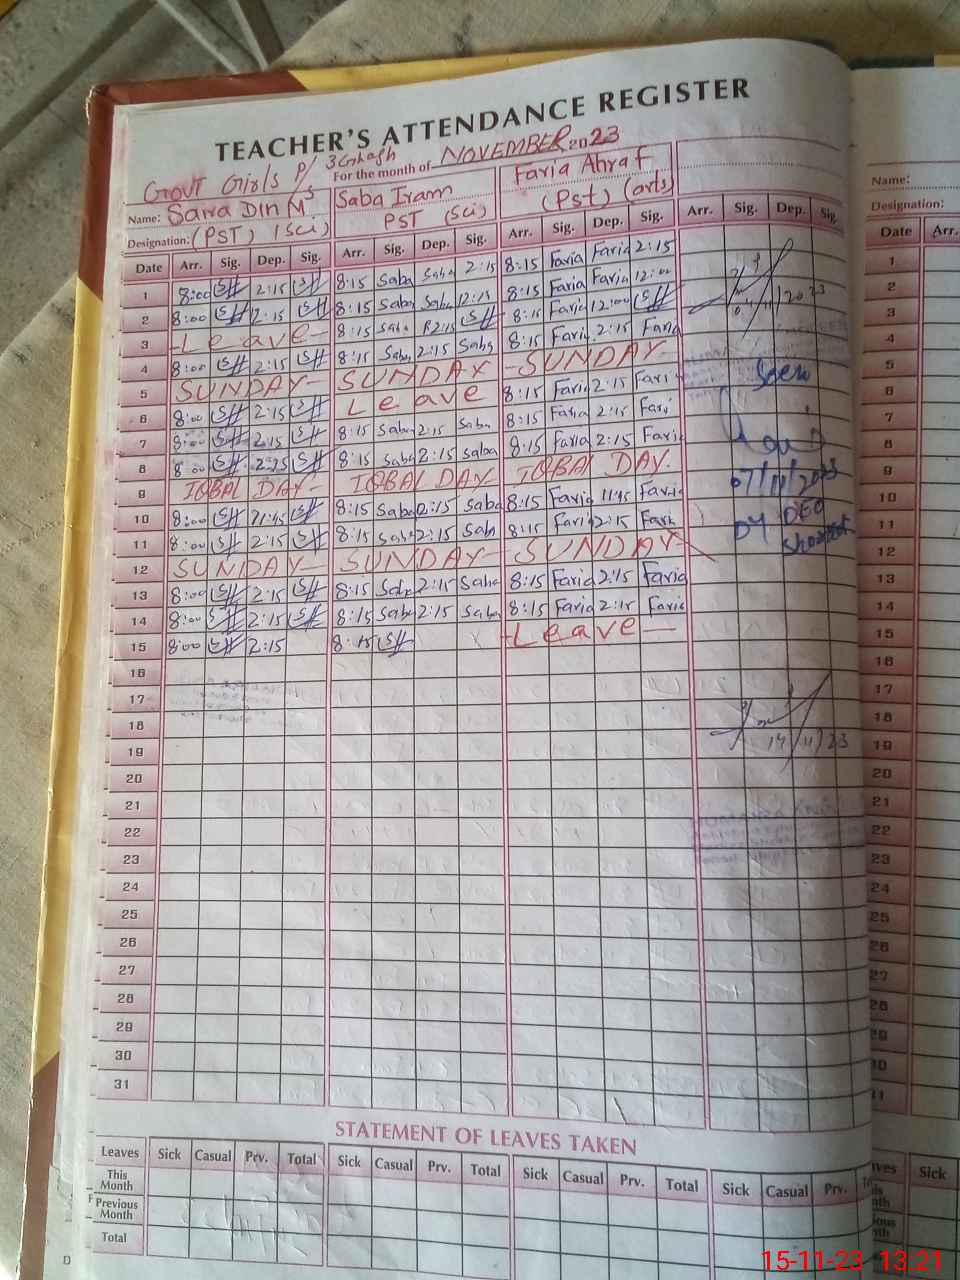 TEACHER'S ATTENDANCE REGISTER
For the month of NOVEMBER 2023
Govt Girls P/
Name: Saira Din Saba Iram Faria Ahraf
Designation: (PST) (Sci) PST (Sci) (Pst) (arts)
Date Arr. Sig. Dep. Sig. Arr. Sig. Dep. Sig. Arr. Sig. Dep. Sig. Arr. Sig. Dep. Sig.
1 8:00 2:15 8:15 Saba Saba 2:15 8:15 Faria Faria 2:15
2 8:00 2:15 8:15 Saba Saba 12:15 8:15 Faria Faria 12:00
3 Leave 8:15 Saba 2:15 8:15 Faria 12:00
4 8:00 2:15 8:15 Saba 2:15 Saba 8:15 Faria 2:15 Faria
5 SUNDAY SUNDAY SUNDAY
6 8:00 2:15 Leave 8:15 Faria 2:15 Faria
7 8:00 2:15 8:15 Saba 2:15 Saba 8:15 Faria 2:15 Faria
8 8:00 2:15 8:15 Saba 2:15 Saba 8:15 Faria 2:15 Faria
9 IQBAL DAY IQBAL DAY IQBAL DAY
10 8:00 11:45 8:15 Saba 2:15 Saba 8:15 Faria 11:45 Faria
11 8:00 2:15 8:15 Saba 2:15 Saba 8:15 Faria 2:15 Faria
12 SUNDAY SUNDAY SUNDAY
13 8:00 2:15 8:15 Saba 2:15 Saba 8:15 Faria 2:15 Faria
14 8:00 2:15 8:15 Saba 2:15 Saba 8:15 Faria 2:15 Faria
15 8:00 2:15 8:15 Leave
16
17
18
19
20
21
22
23
24
25
26
27
28
29
30
31
Seen
07/11/2023
DY DEO
14/11/23
STATEMENT OF LEAVES TAKEN
Leaves Sick Casual Prv. Total Sick Casual Prv. Total Sick Casual Prv. Total Sick Casual Prv.
This Month
Previous Month
Total
Name:
Designation:
Date Arr.
1
2
3
4
5
6
7
8
9
10
11
12
13
14
15
16
17
18
19
20
21
22
23
24
25
26
27
28
29
Sick
15-11-23 13:21